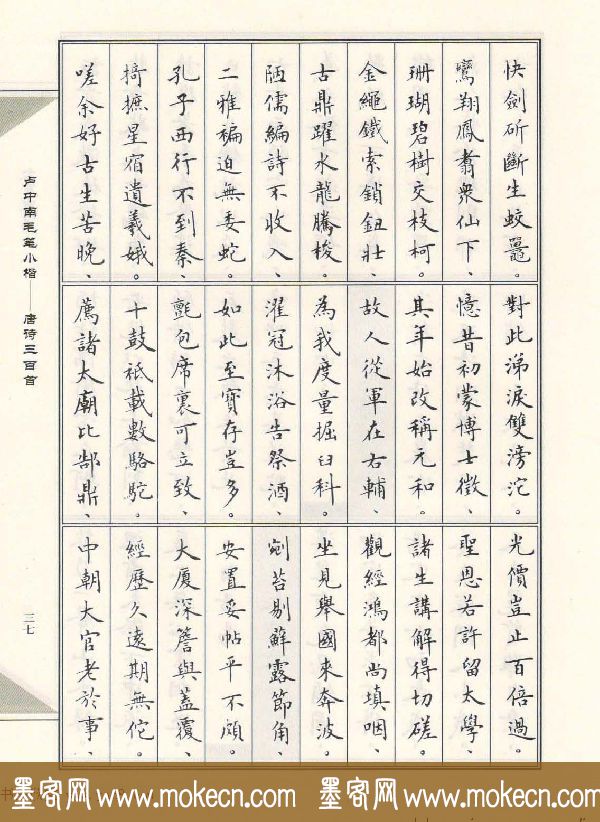 快劍斫斷生蛟鼉。
鸞翔鳳翥衆仙下、
珊瑚碧樹交枝柯。
金繩鐵索鎖鈕壯、
古鼎躍水龍騰梭。
陋儒編詩不收入、
二雅褊迫無委蛇。
孔子西行不到秦、
掎摭星宿遺羲娥。
嗟余好古生苦晚、
對此涕淚雙滂沱。
憶昔初蒙博士徵、
其年始改稱元和。
故人從軍在右輔、
為我度量掘臼科。
濯冠沐浴告祭酒、
如此至寶存豈多。
氈包席裹可立致、
十鼓祇載數駱駝。
薦諸太廟比郜鼎、
光價豈止百倍過。
聖恩若許留太學、
諸生講解得切磋。
觀經鴻都尚填咽、
坐見舉國來奔波。
剜苔剔蘚露節角、
安置妥帖平不頗。
大厦深簷與蓋覆、
經歷久遠期無佗。
中朝大官老於事、
卢中南毛笔小楷——唐诗三百首
三七
墨客网 www.mokecn.com 墨客网 www.mokecn.com